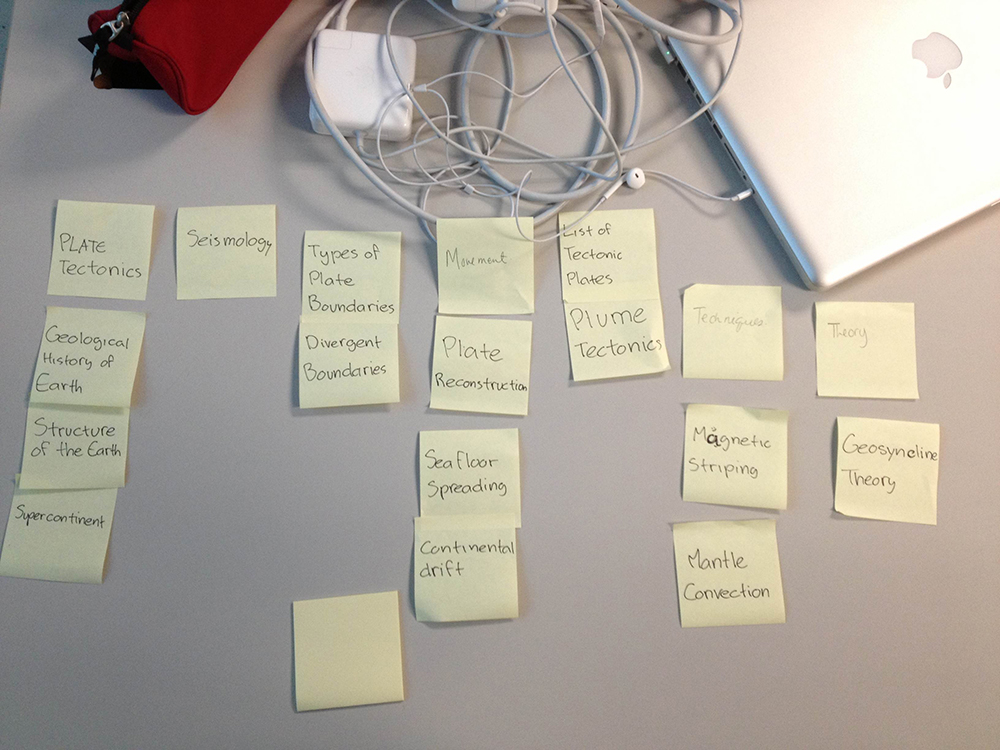 PLATE
Tectonics
Geological
History of
Earth
Structure
of the Earth
Supercontinent
Seismology
Types of
Plate
Boundaries
Divergent
Boundaries
Movement
Plate
Reconstruction
Sea floor
Spreading
Continental
drift
List of
Tectonic
Plates
Plume
Tectonics
Techniques
Magnetic
Striping
Mantle
Convection
Theory
Geosyncline
Theory